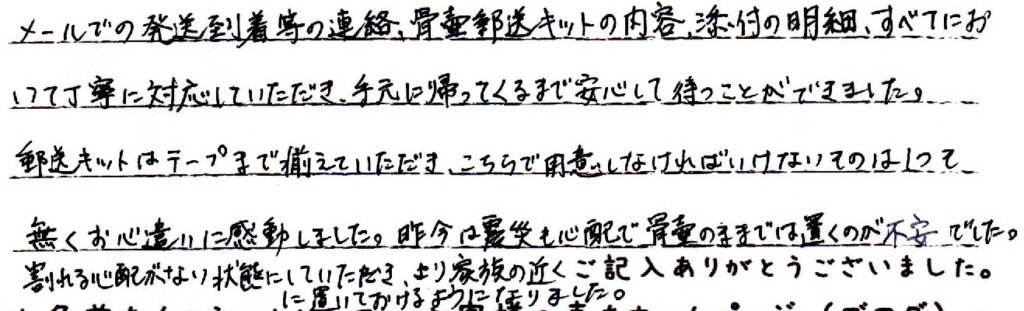 メールでの発送到着等の連絡、骨壷郵送キットの内容、添付の明細、すべてにお
いて丁寧に対応していただき、手元に帰ってくるまで安心して待つことができました。
郵送キットはテープまで揃えていただき、こちらで用意しなければいけないものは1つも
無くお心遣いに感動しました。昨今は震災も心配で骨壷のままでは置くのが不安でした。
割れる心配がない状態にしていただき、より家族の近く
ご記入ありがとうございました。
に置いておけるようになりました。